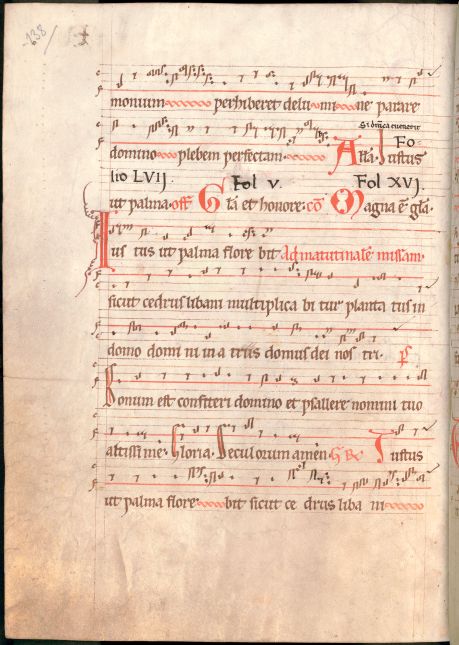 138
monium perhiberet delumine parare
Si dñica evenerit
domino plebem perfectam. Alła. Iustus Fo
lio LVIJ. Fol v. Fol XVJ.
ut palma. off Głá et honore. cō Magna ē głá.
Ius tus ut palma flore bit Ad matutinalē missam.
sicut cedrus libani multiplica bi tur planta tus in
domo domi ni in a triis domus dei nos tri. ps
Bonum est confiteri domino et psallere nomini tuo
altissime. Gloria. Seculorum amen. Iustus
ut palma flore bit sicut ce drus liba ni